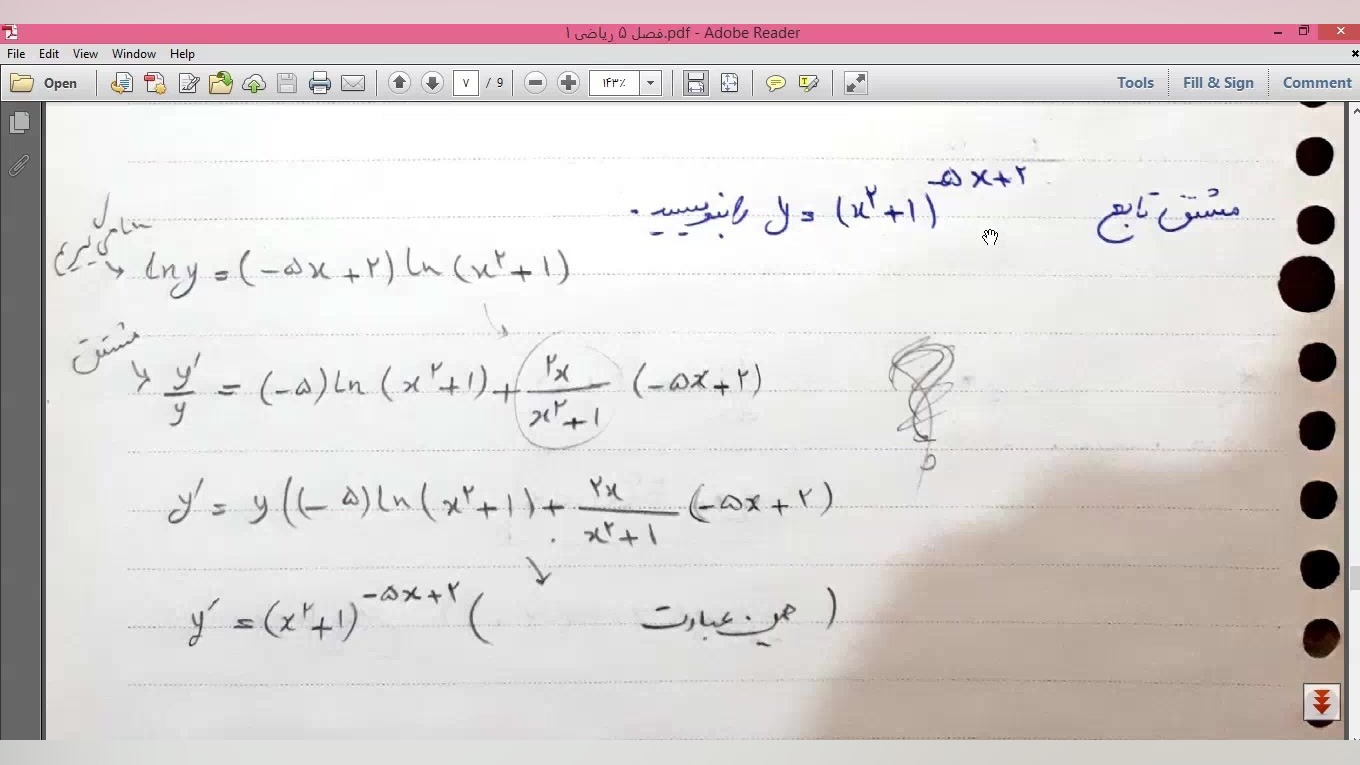 فصل ۵ ریاضی ۱.pdf - Adobe Reader
File Edit View Window Help
Open ۷ / 9 ۱۴۳٪ Tools Fill & Sign Comment
مشتق تابع y = (x²+1)^(-۵x+۲) را بنویسید.
ln y = (-۵x+۲) ln (x²+1)
مشتق
y'/y = (-۵) ln (x²+1) + ۲x/(x²+1) (-۵x+۲)
y' = y((-۵) ln (x²+1) + ۲x/(x²+1) (-۵x+۲)
y' = (x²+1)^(-۵x+۲) ( همین عبارت )